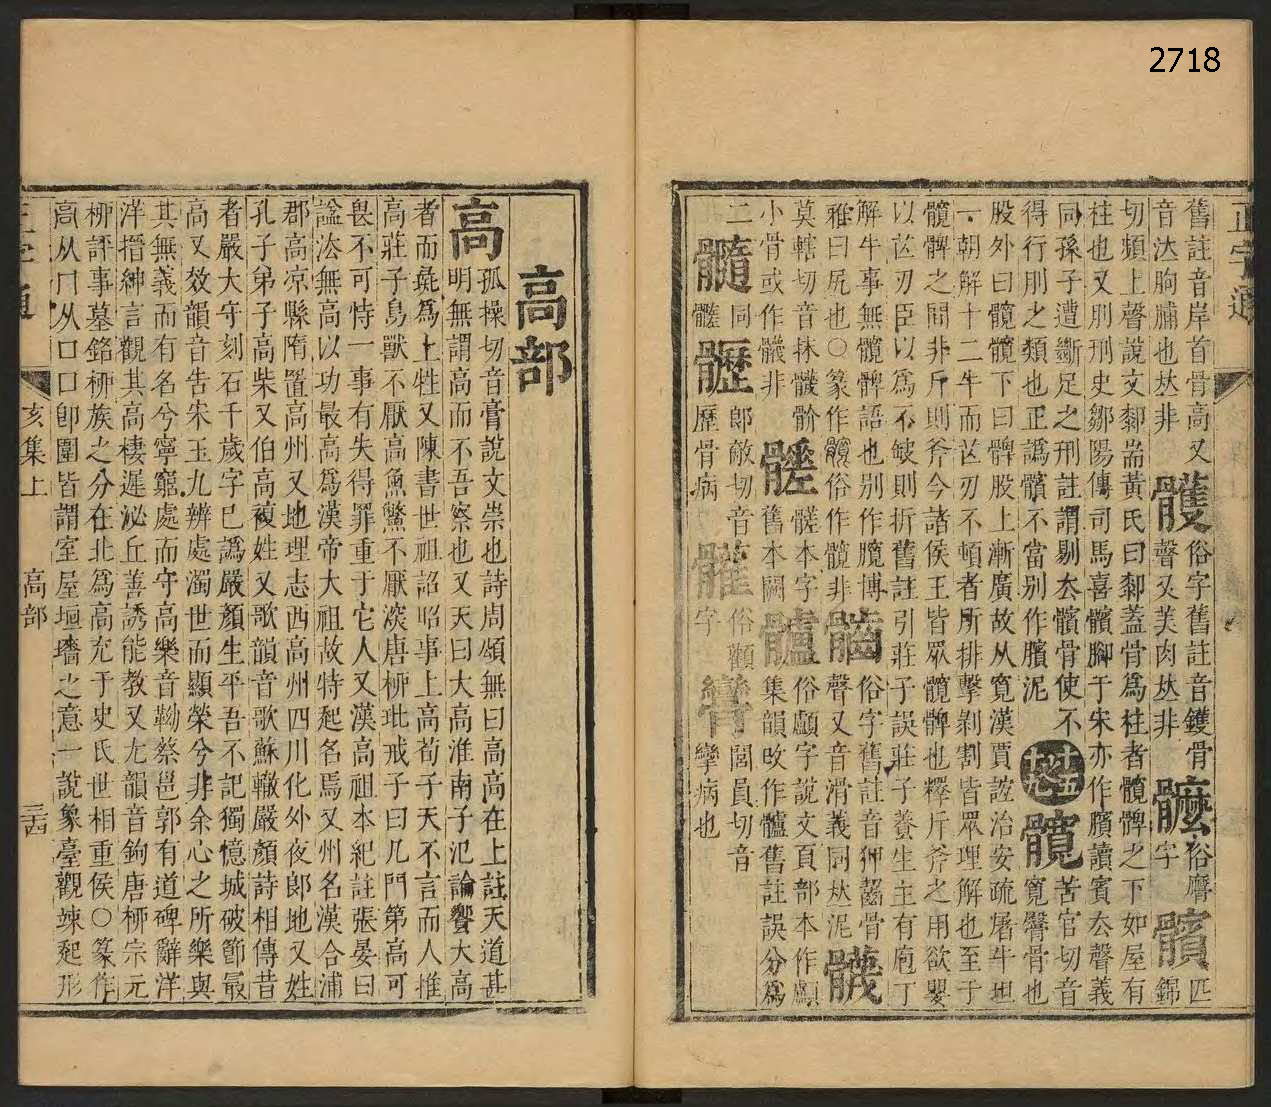 2718
正字通
舊註音岸首骨高又
音㳒胊脯也𠀤非
髖俗字舊註音鑊骨
聲又羙肉𠀤非
字俗膺
髕匹
錦
切頻上聲說文厀耑黃氏曰厀蓋骨爲柱者髖髀之下如屋有
柱也又刖刑史鄒陽傳司馬喜髕腳于宋亦作臏讀賓去聲義
同孫子遭斷足之刑註謂剔去髕骨使不
得行刖之類也正譌髕不當别作臏泥
十五
髖苦官切音
寬臀骨也
股外曰髖髖下曰髀股上漸廣故从寬漢賈誼治安疏屠牛坦
一朝解十二牛而芒刃不頓者所排擊剝割皆眾理解也至于
髖髀之間非斤則斧今諸侯王皆眾髖髀也釋斤斧之用欲嬰
以芒刃臣以爲不缺則折舊註引莊子誤莊子養生主有庖丁
解牛事無髖髀語也别作臗博
雅曰尻也○篆作髖俗作髋非
俗字舊註音狎齧骨
聲又音滑義同𠀤泥
莫轄切音抹髍骱
小骨或作非
髊本字
舊本闕
髗俗顱字說文頁部本作顱
集韻或作髗舊註誤分爲
二
髓同
髓
䯬郎敵切音
歷骨病
俗顴
字
閭員切音
攣病也
高部
高孤操切音膏說文崇也詩周頌無曰高高在上註天道甚
明無謂高而不吾察也又天曰大高淮南子氾論饗大高
者而彘爲上牲又陳書世祖詔昭事上高荀子天不言而人推
高莊子鳥獸不厭高魚鱉不厭深唐栁玭戒子曰几門第高可
畏不可恃一事有失得罪重于它人又漢高祖本紀註張晏曰
謚法無高以功最高爲漢帝大祖故特起名焉又州名漢合浦
郡高凉縣隋置高州又地理志西高州四川化外夜郎地又姓
孔子弟子高柴又伯高複姓又歌韻音歌蘇轍嚴顏詩相傳昔
者嚴大守刻石千歲字已譌嚴顏生平吾不記獨憶城破節最
高又效韻音告宋玉九辨處濁世而顯榮兮非余心之所樂與
其無義而有名兮寧窮處而守高樂音勒蔡邕郭有道碑辭洋
洋搢紳言觀其高棲遲泌丘善誘能教又尤韻音鉤唐栁宗元
栁評事墓銘栁族之分在北爲高充于史氏世相重侯○篆作
髙从冂从口囗卽圍皆謂室屋垣墻之意一說象臺觀竦起形
正字通
亥集上
高部
三四